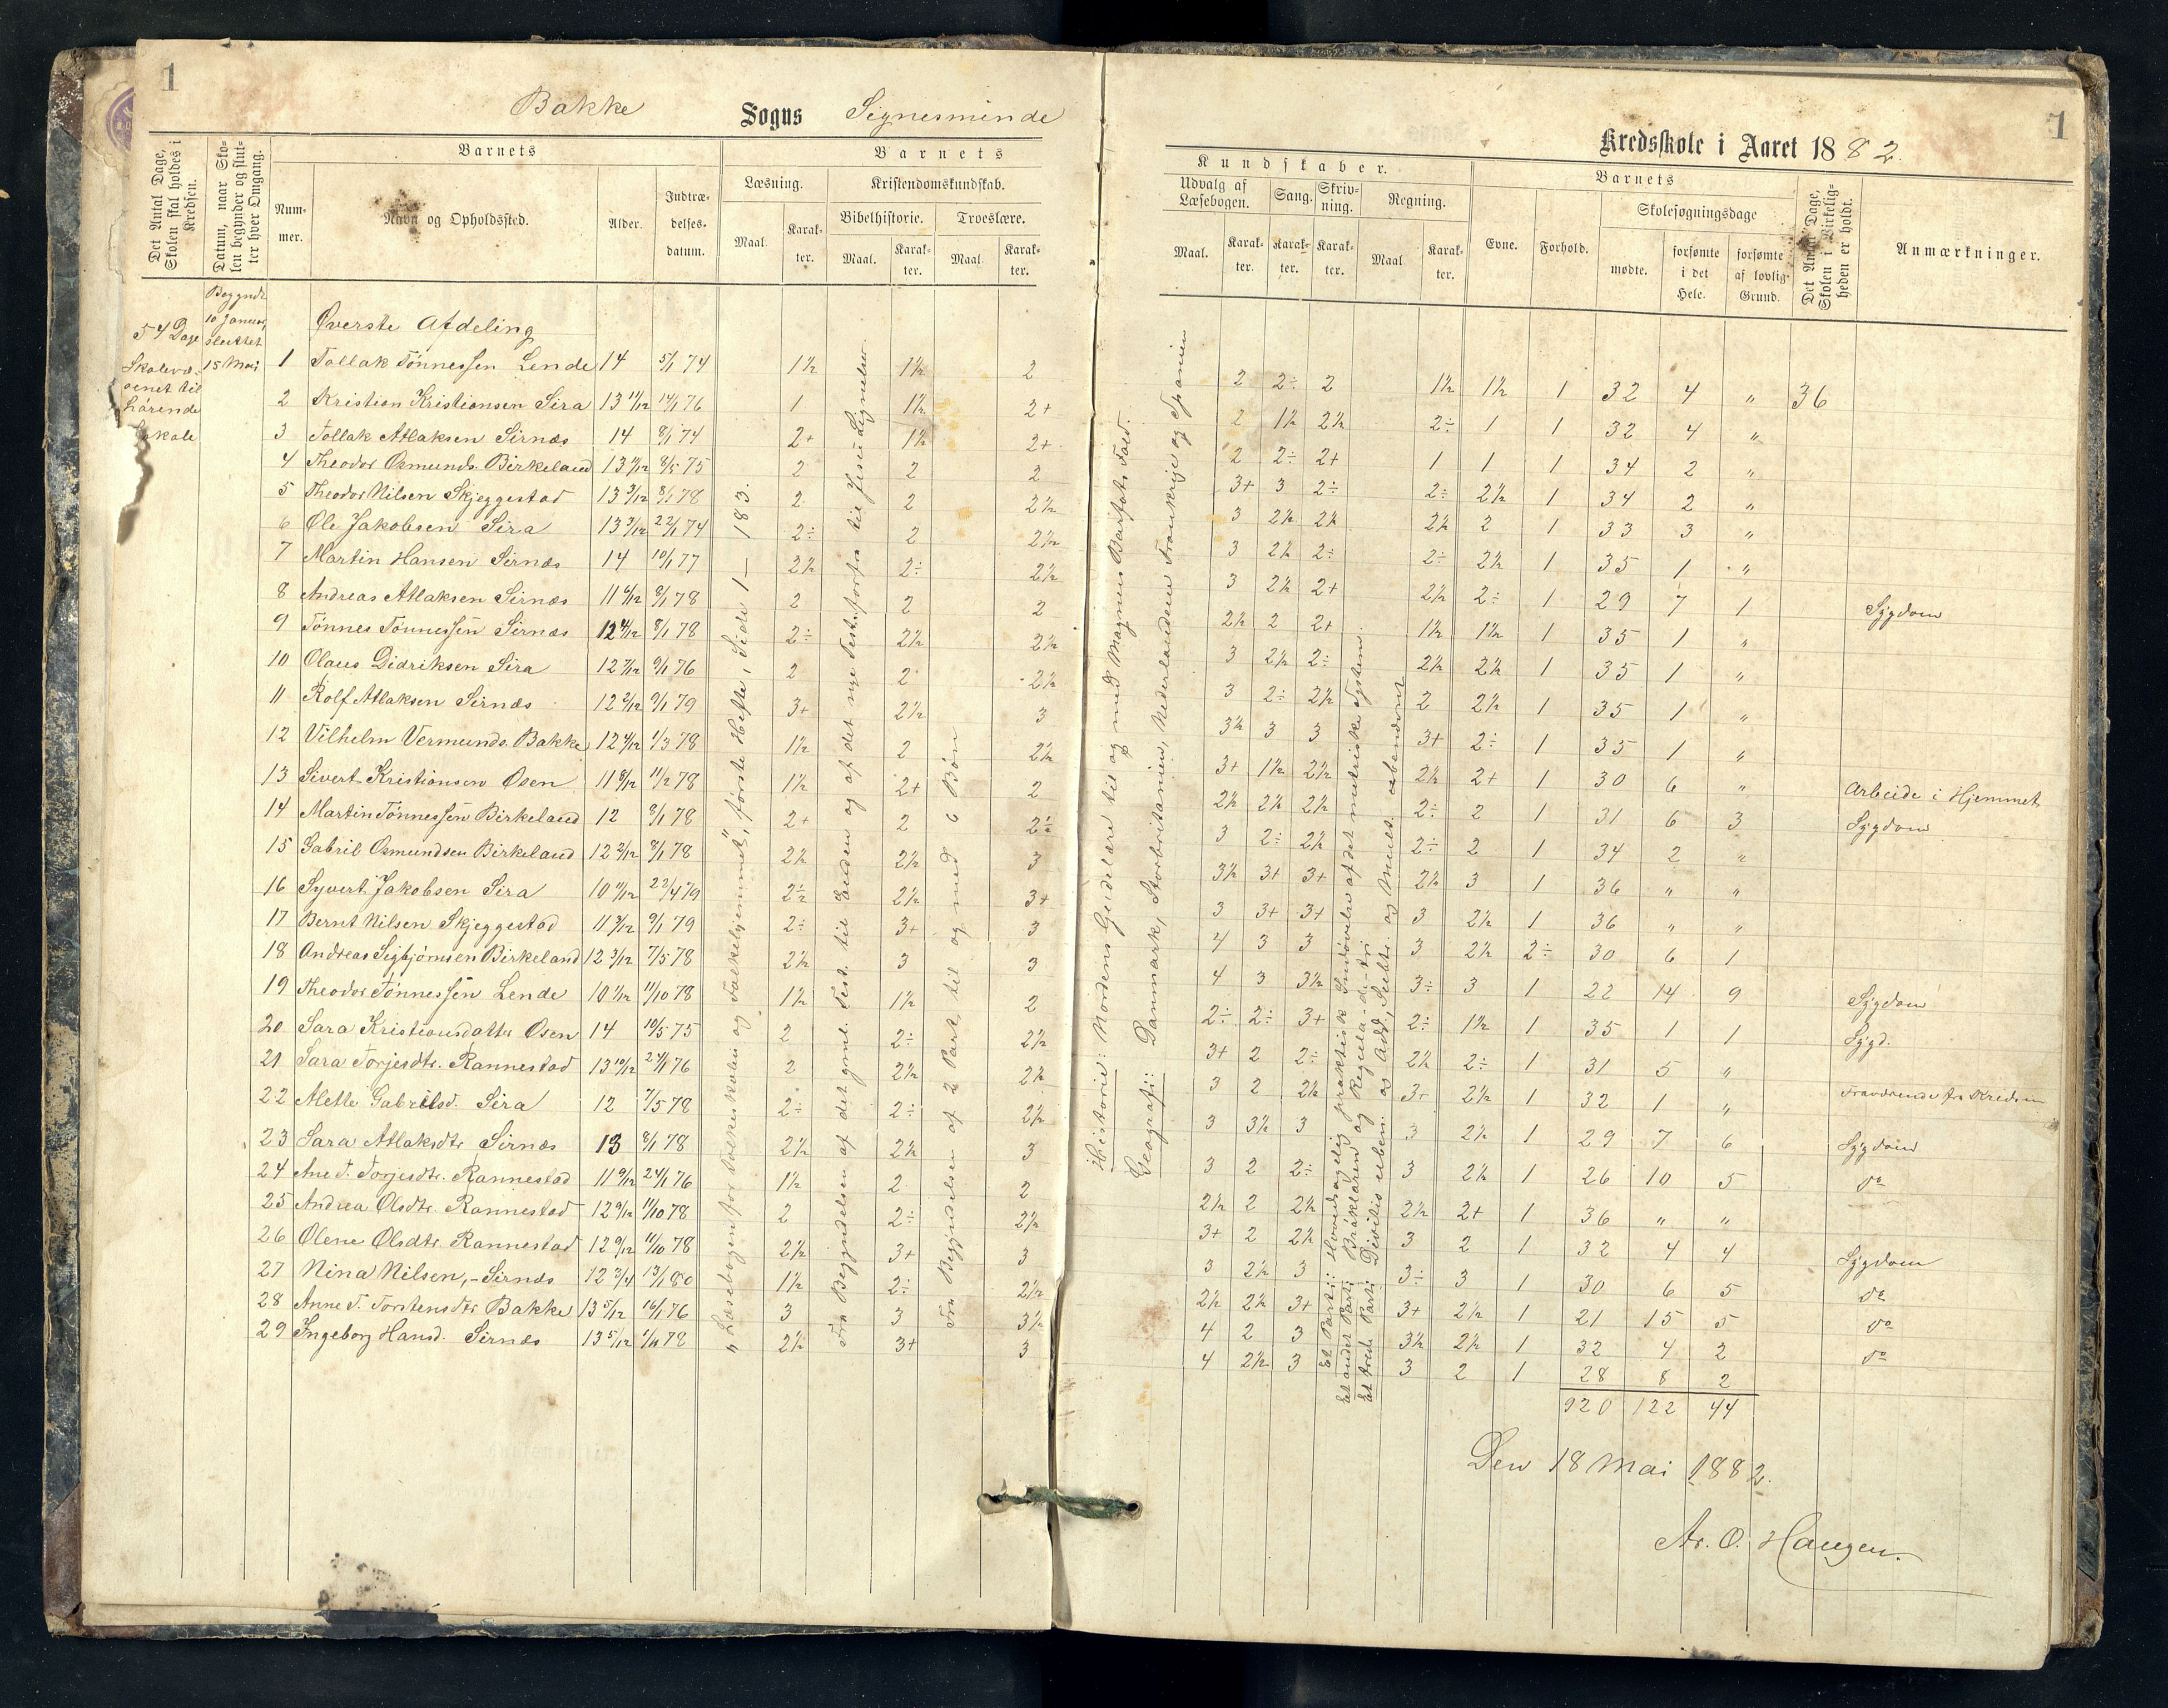 1
Bakke Sogns Signesminde
Det Antal Dage, Skolen skal holdes i Kredsen.
Datum, naar Skolen begynder og slutter hver Omgang.
Barnets
Nummer.
Navn og Opholdssted.
Alder.
Indtrædelsesdatum.
Barnets
Læsning.
Maal.
Karakter.
Kristendomskundskab.
Bibelhistorie.
Maal.
Karakter.
Troeslære.
Maal.
Karakter.
54 Dage
Skolevæsenet tilhørende Skole
Begyndt 10 Januar, sluttet 15 Mai
Øverste Afdeling
1 Tollak Tønnessen Lende 14 5/1 74 1½ 1½ 2
2 Kristian Kristiansen Sira 13 11/12 14/1 76 1 1½ 2+
3 Tollak Atlaksen Sirnæs 14 8/1 74 2+ 1½ 2+
4 Theodor Osmunds. Birkeland 13 11/12 8/5 75 2 2 2
5 Theodor Nilsen Skjeggestad 13 3/12 8/1 78 2 2 2½
6 Ole Jakobsen Sira 13 3/12 22/1 74 2÷ 2 2½
7 Martin Hansen Sirnæs 14 10/1 77 2½ 2÷ 2½
8 Andreas Atlaksen Sirnæs 11 6/12 8/1 78 2 2 2
9 Tønnes Tønnessen Sirnæs 12 4/12 8/1 78 2÷ 2½ 2½
10 Olaus Didriksen Sira 12 7/12 9/1 76 2 2 2½
11 Rolf Atlaksen Sirnæs 12 2/12 9/1 79 3+ 2½ 3
12 Vilhelm Vermunds. Bakke 12 4/12 1/3 78 1½ 2 2½
13 Sivert Kristiansen Osen 11 8/12 11/2 78 1½ 2+ 2
14 Martin Tønnessen Birkeland 12 8/1 78 2+ 2 2½
15 Gabriel Osmundsen Birkeland 12 2/12 8/1 78 2½ 2½ 3
16 Syvert Jakobsen Sira 10 11/12 22/4 79 2½ 2½ 3+
17 Bernt Nilsen Skjeggestad 11 3/12 9/1 79 2÷ 3+ 3
18 Andreas Sigbjørnsen Birkeland 12 3/12 7/5 78 2½ 3 3
19 Theodor Tønnessen Lende 10 1/12 11/10 78 1½ 1½ 2
20 Sara Kristiansdatter Osen 14 10/5 75 2 2÷ 2½
21 Sara Torjesdtr. Rannestad 13 10/12 24/1 76 2 2½ 2½
22 Alette Gabrilsd. Sira 12 7/5 78 2÷ 2÷ 2½
23 Sara Atlaksdtr Sirnæs 13 8/1 78 2½ 2½ 3
24 Ane T. Torjesdtr. Rannestad 11 9/12 24/1 76 1½ 2 2
25 Andrea Olsdtr. Rannestad 12 9/12 11/10 78 2 2÷ 2½
26 Olene Olsdtr. Rannestad 12 9/12 11/10 78 2½ 3+ 3
27 Nina Nilsen, - Sirnæs 12 3/4 13/1 80 1½ 2÷ 2½
28 Anne T. Torstensdtr Bakke 13 5/12 16/1 76 3 3 3½
29 Ingeborg Hansd. Sirnæs 13 5/12 1/11 78 2½ 3+ 3
„Læsebogen for Folkeskolen og Folkehjemmet", første Hefte, Side 1 — 183.
Fra Begyndelsen af det gml. Test. til Enden og af det nye Test. forfra til Jesu Lignelser.
Fra Begyndelsen af 2 Part til og med 6 Bøn
1
Kredsskole i Aaret 1882.
Kundskaber.
Udvalg af Læsebogen.
Maal.
Karakter.
Sang.
Karakter.
Skrivning.
Karakter.
Regning.
Maal.
Karakter.
Barnets
Evne.
Forhold.
Skolesøgningsdage
mødte.
forsømte i det Hele.
forsømte af lovlig Grund.
Det Antal Dage, Skolen i Virkeligheden er holdt.
Anmærkninger.
Historie: Nordens Gudelære til og med Magnus Barfots Fald.
Geografi: Danmark, Storbritanien, Nederlandene Frankrige og Spanien
Et Parti: Hovedsagelig praktisk Indøvelse af det metriske System.
Et andet Parti Brøklæren og Regula-de-tri
Et tredie Parti Divisis uben. og Add., Subtr. og Mult. ubenævnt
2 2÷ 2 1½ 1½ 1 32 4 „ 36
2 1½ 2½ 2÷ 1 1 32 4 „
2 2÷ 2+ 1 1 1 34 2 „
3+ 3 2÷ 2÷ 2½ 1 34 2 „
3 2½ 2½ 2½ 2 1 33 3 „
3 2½ 2÷ 2÷ 2½ 1 35 1 „
3 2½ 2+ 2½ 2÷ 1 29 7 1 Sygdom
2½ 2 2+ 1½ 1½ 1 35 1 „
3 2½ 2÷ 2½ 2½ 1 35 1 „
3 2÷ 2½ 2 2½ 1 35 1 „
3½ 3 3 3+ 2÷ 1 35 1 „
3+ 1½ 2½ 2½ 2+ 1 30 6 „ Arbeide i Hjemmet
2½ 2½ 2½ 2÷ 2 1 31 6 3 Sygdom
3 2÷ 2½ 2÷ 2 1 34 2 „
3½ 3+ 3+ 2½ 3 1 36 „ „
3 3+ 3+ 3 2½ 1 36 „ „
4 3 3 3 2½ 2÷ 30 6 1
4 3 3½ 3÷ 3 1 22 14 9 Sygdom
2÷ 2÷ 3+ 2÷ 1½ 1 35 1 1 Sygd.
3+ 2 2÷ 2½ 2÷ 1 31 5 „
3 2 2½ 3+ 2½ 1 32 1 „ Fraværende fra Kredsen
3 3½ 3 3 2½ 1 29 7 6 Sygdom
3 2 2÷ 3 2½ 1 26 10 5 do
2½ 2 2½ 2½ 2+ 1 36 „ „
3+ 2 2½ 3 2 1 32 4 4 Sygdom
3 2½ 3 3÷ 3 1 30 6 5 do
2½ 2½ 3+ 3+ 2½ 1 21 15 5 do
4 2 3 3½ 2½ 1 32 4 2 do
4 2½ 3 3 2 1 28 8 2
920 122 44
Den 18 Mai 1882.
A. O. Haugen.